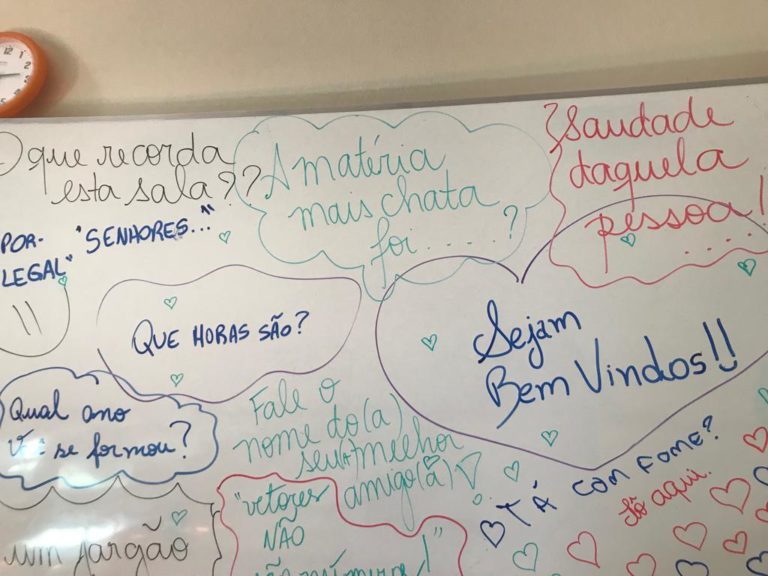 12
1
2
3
4
O que recorda
esta sala??
A matéria
mais chata
foi......?
Saudade
daquela
pessoa!
....
POR-
LEGAL"
"SENHORES..."
QUE HORAS SÃO?
Sejam
Bem Vindos!!
Qual ano
se formou?
Fale o
nome do(a)
seu(a) melhor
amigo(a)!
TÁ COM FOME?
Tô aqui.
um jargão
"vetores
NÃO
são